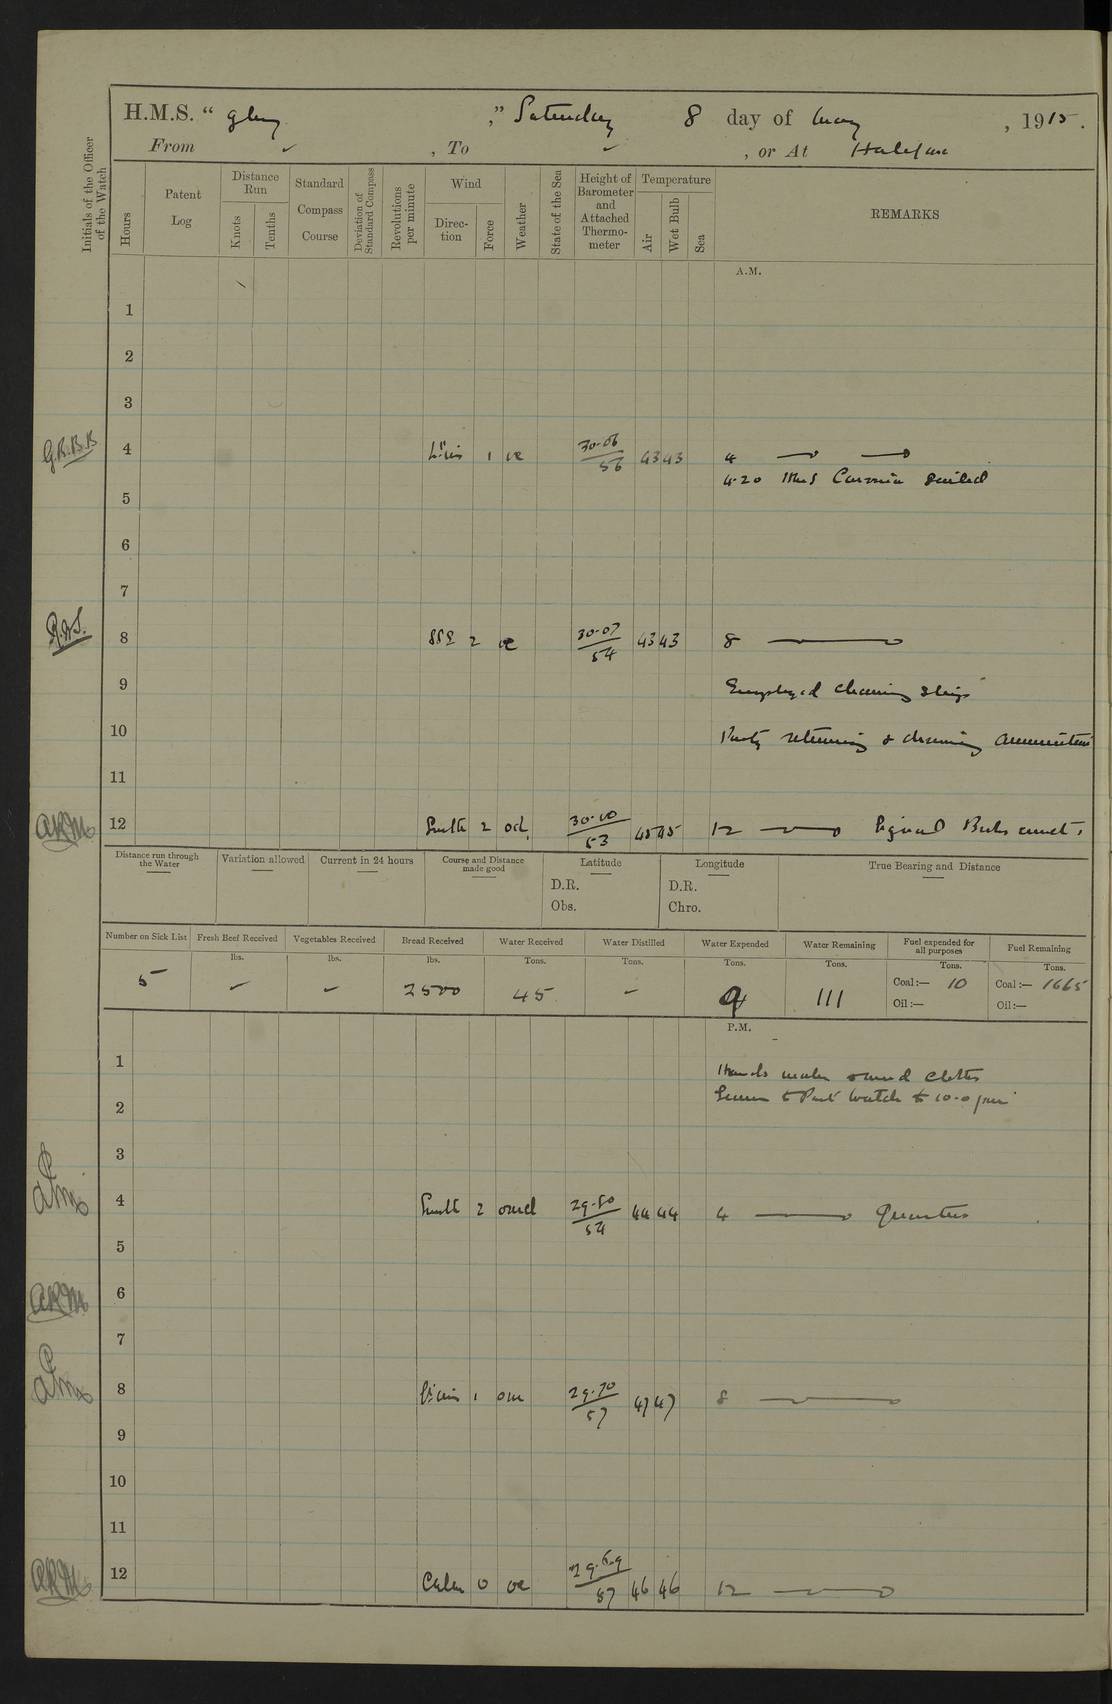 H.M.S. “ Glory ,” Saturday 8 day of May , 1915.
From ✓ , To ✓ , or At Halifax
Initials of the Officer of the Watch
Hours
Patent Log
Distance Run
Knots
Tenths
Standard Compass Course
Deviation of Standard Compass
Revolutions per minute
Wind
Direction
Force
Weather
State of the Sea
Height of Barometer and Attached Thermometer
Temperature
Air
Wet Bulb
Sea
REMARKS
A.M.
1
2
3
G.B.B.B 4 Lt airs 1 oc 30.06 56 43 43 4
4.20 HMS Caronia sailed
5
6
7
8 SSE 2 oc 30.07 54 43 43 8
9 Employed cleaning ship
10 Party returning & cleaning ammunition
11
ARM 12 South 2 30.00 53 45 45 12 Signal Boys
Distance run through the Water
Variation allowed
Current in 24 hours
Course and Distance made good
Latitude
D.R.
Obs.
Longitude
D.R.
Chro.
True Bearing and Distance
Number on Sick List
Fresh Beef Received
Vegetables Received
Bread Received
Water Received
Water Distilled
Water Expended
Water Remaining
Fuel expended for all purposes
Fuel Remaining
lbs. lbs. lbs. Tons. Tons. Tons. Tons. Tons. Tons.
5 ✓ ✓ 2500 45 - 9 111 Coal:— 10 Coal:— 1665
Oil:— Oil:—
P.M.
1 Hands make & mend clothes
2 Leave to Part Watch to 10.0 pm
3
4 South 2 omd 29.80 54 44 44 4 Quarters
5
ARM 6
7
8 Lt airs 1 om 29.70 57 47 47 8
9
10
11
ARM 12 Calm 0 oc 29.69 57 46 46 12